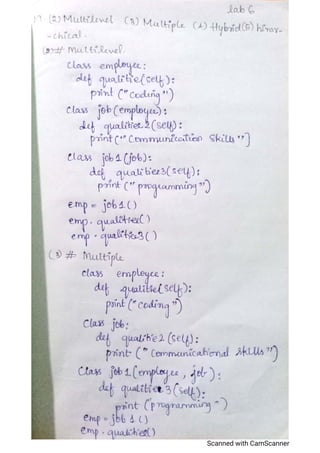 lab 6
1) (2) Multilevel (3) Multiple (4) Hybrid (5) hirar-
-chical.
(2) # multilevel.
class employee:
def qualitie(self):
print ("coding")
class job (employee):
def qualities2(self):
print("communication skills")
class job1 (job):
def qualities3(self):
print("programming")
emp = job1()
emp.qualities()
emp.qualities3()
(3) # Multiple
class employee:
def qualitie(self):
print("coding")
class job:
def qualitie2(self):
print("communicational skills")
class job1(employee, job):
def qualities3(self):
print("programming")
emp = job1()
emp.qualities()
Scanned with CamScanner